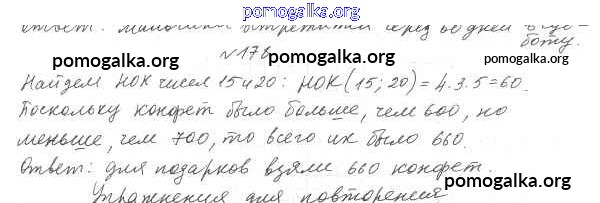 pomogalka.org
встрет
боту.
№178
pomogalka.org
pomogalka.org
Найдем НОК чисел 15 и 20: НОК (15; 20) = 4·3·5 = 60.
Поскольку конфет было больше, чем 600, но
меньше, чем 700, то всего их было 660.
Ответ: для подарков взяли 660 конфет.
pomogalka.org
pomogalka.org
Упражнения для повторения